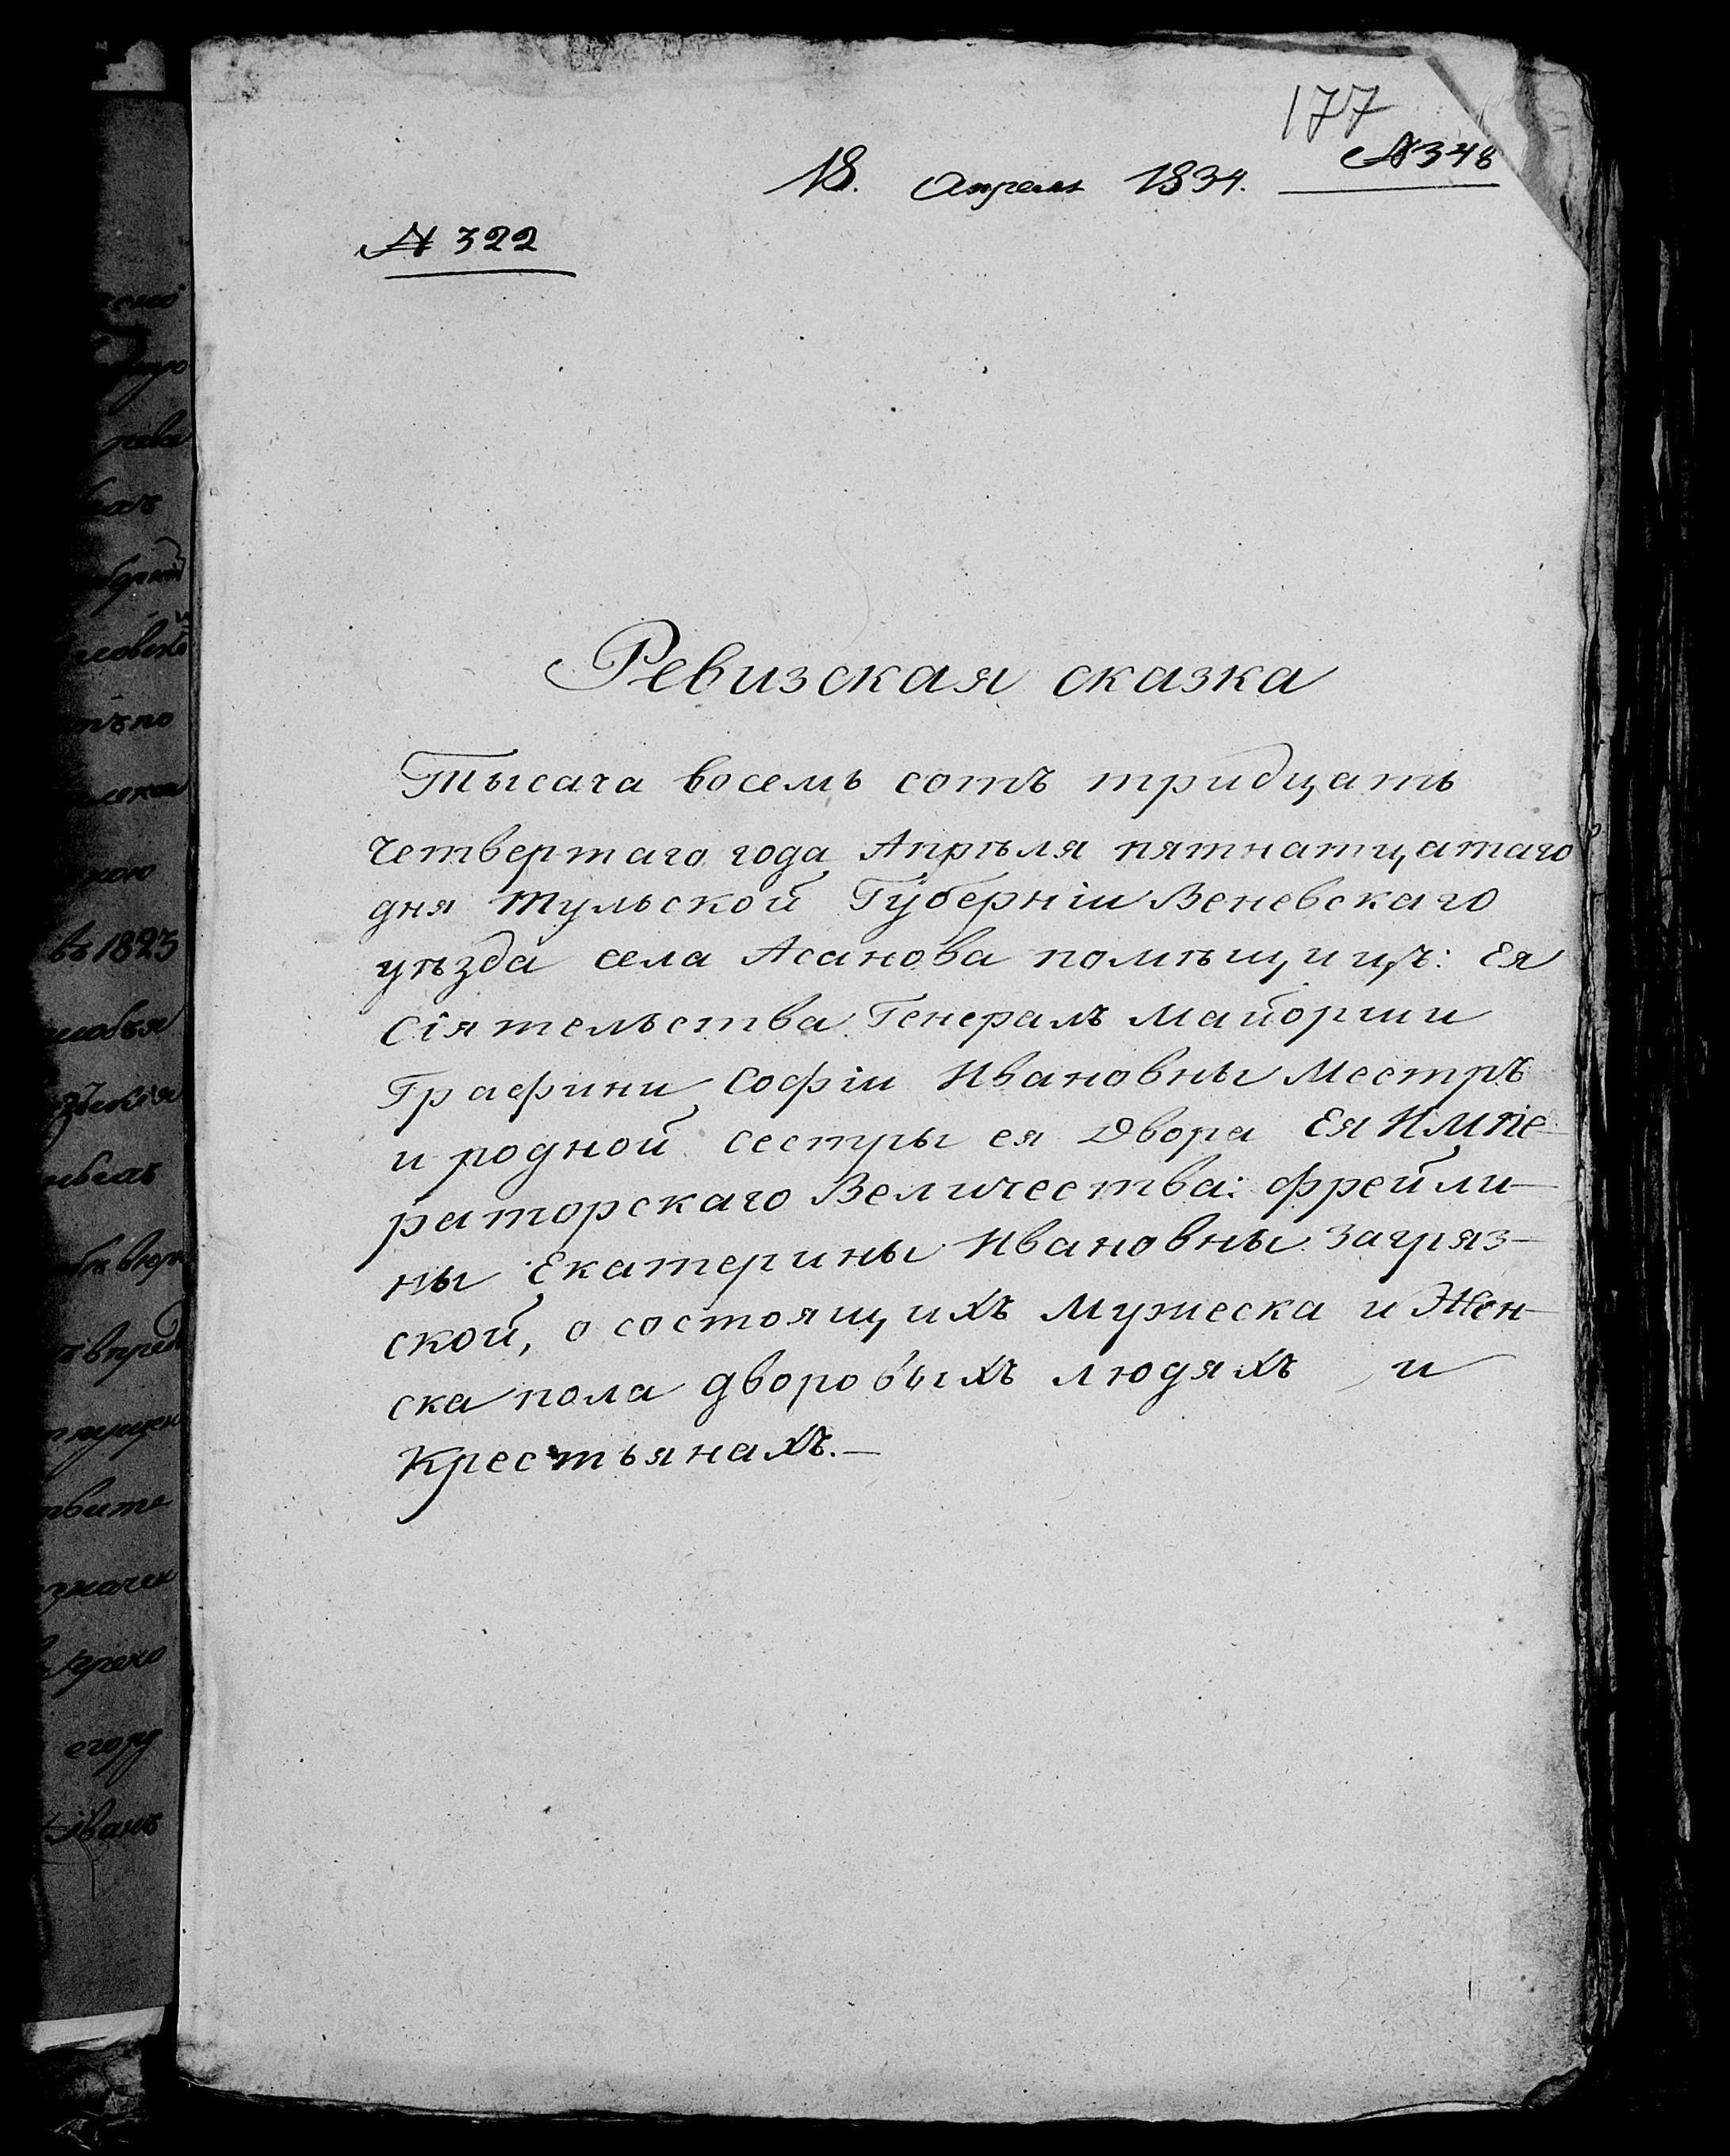 177
№ 348
18. Апреля 1834.
№ 322
Ревизская сказка
Тысяча восемь сотъ тридцать
четвертаго года Апрѣля пятнатцатаго
дня Тульской Губерніи Веневскаго
уѣзда села Асанова помѣщицъ: Ея
Сіятельства Генералъ Маиорши
Графини Софіи Ивановны Местръ
и родной сестры ея Двора Ея Импе-
раторскаго Величества: Фрейли-
ны Екатерины Ивановны Загряз-
ской, о состоящихъ мужеска и Жен-
ска пола дворовыхъ людяхъ и
Крестьянахъ.—
въ 1823
егору